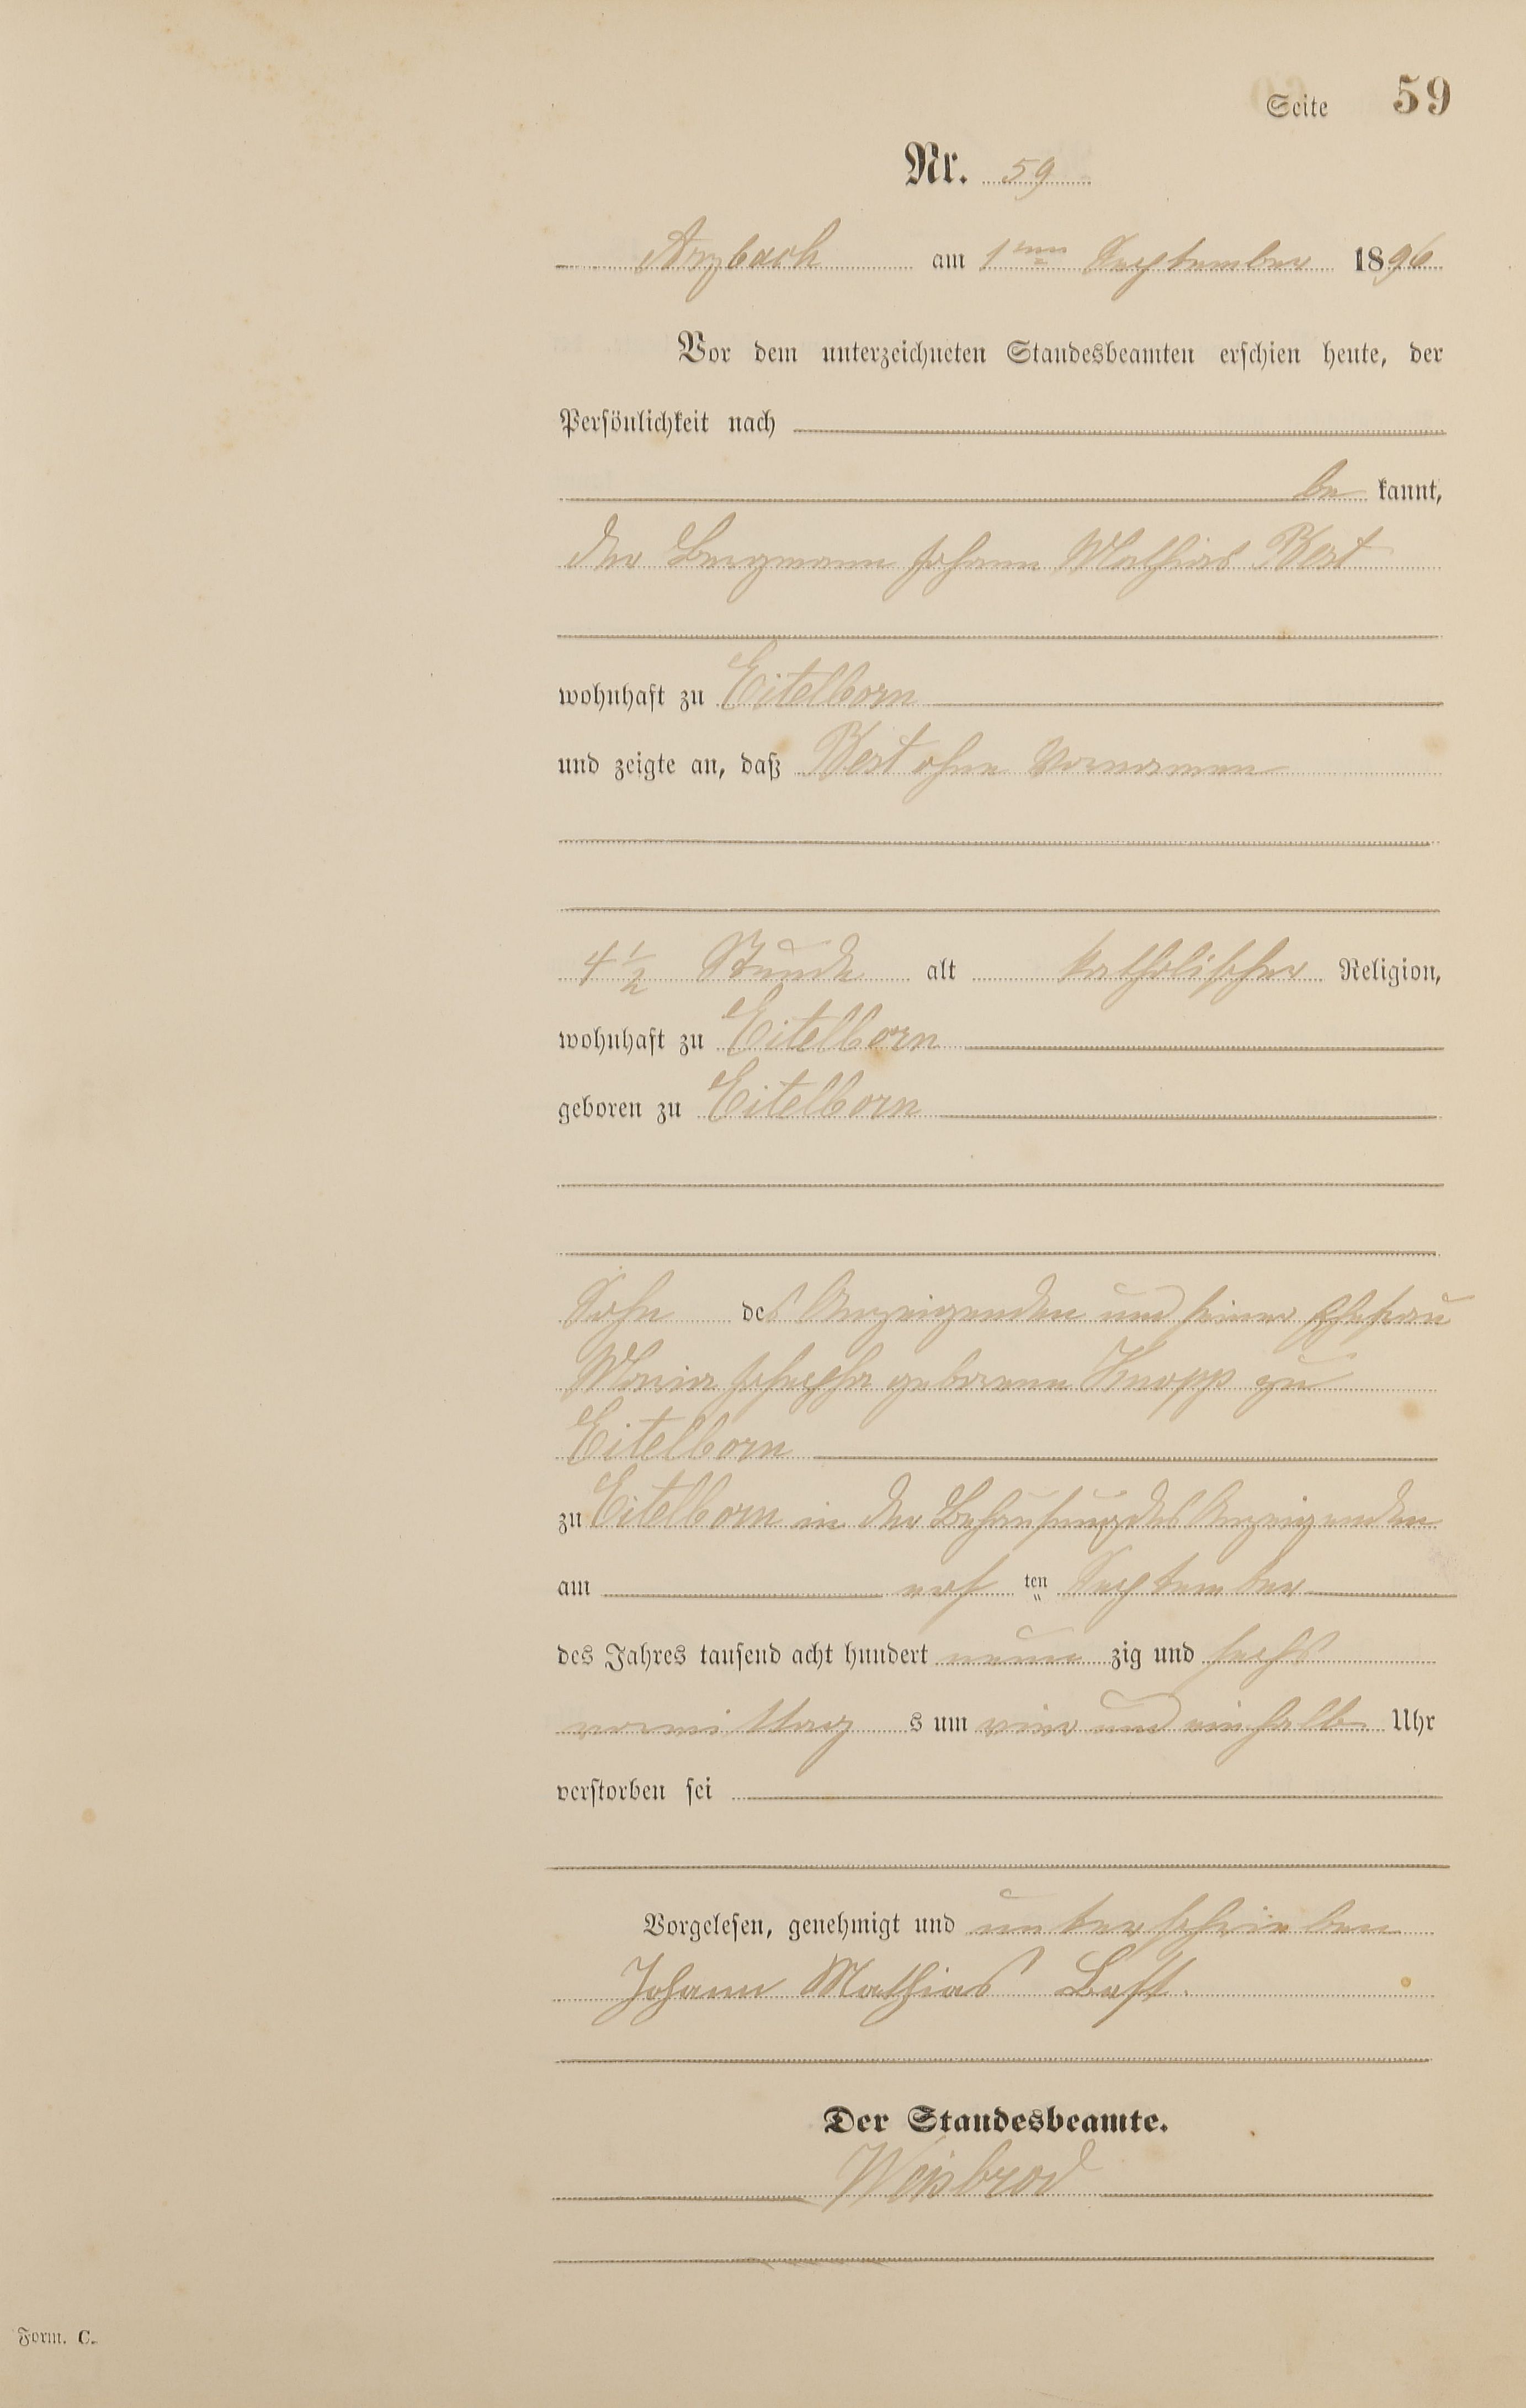 Seite 59
Nr. 59
Arzbach am 1ten September 1896
Vor dem unterzeichneten Standesbeamten erschien heute, der
Persönlichkeit nach
be kannt,
der Bergmann Johann Mathias Best
wohnhaft zu Eitelborn
und zeigte an, daß Best ohne Vornamen
4 1/2 Stunde alt katholischer Religion,
wohnhaft zu Eitelborn
geboren zu Eitelborn
Sohn des Anzeigenden und seiner Ehefrau
Maria Josepha geborene Knopp zu
Eitelborn
zu Eitelborn in der Behausung des Anzeigenden
am ersten September
des Jahres tausend acht hundert neun zig und sechs
vormittag s um vier und einhalb Uhr
verstorben sei
Vorgelesen, genehmigt und unterschrieben
Johann Mathias Best.
Der Standesbeamte.
Weisbrod
Form. C.